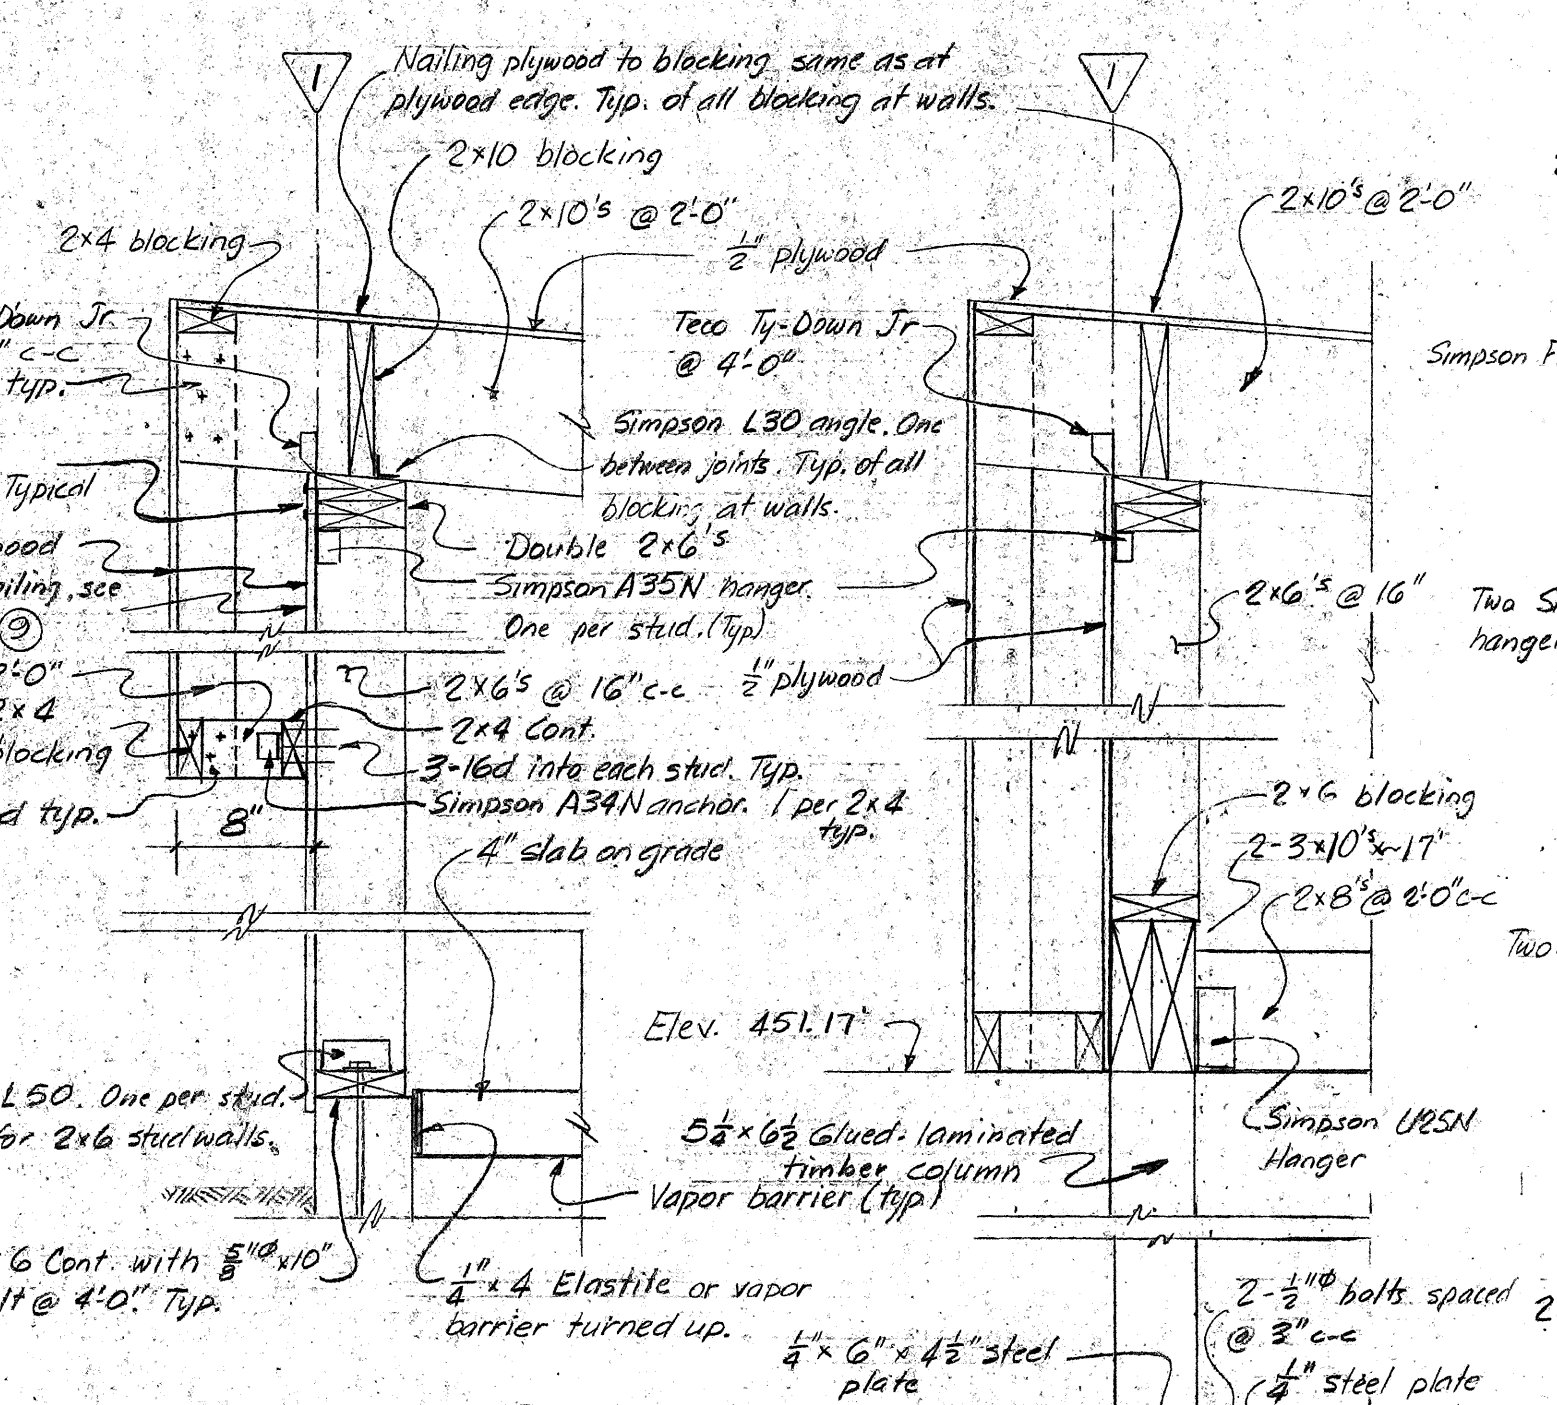 1
Nailing plywood to blocking same as at
plywood edge. Typ. of all blocking at walls.
1
2x10 blocking
2x10's @ 2'-0"
2x10's @ 2'-0"
2x4 blocking
1/2" plywood
Down Jr.
" c-c
typ.
Teco Ty-Down Jr
@ 4'-0"
Simpson
Simpson L30 angle. One
between joints. Typ. of all
blocking at walls.
Typical
Double 2x6's
Simpson A35N hanger.
One per stud. (Typ)
see
9
2x6's @ 16"
Two
hanger
'-0"
x4
blocking
2x6's @ 16" c-c
1/2" plywood
2x4 Cont.
3-16d into each stud. Typ.
Simpson A34N anchor. 1 per 2x4
typ.
typ.
8"
4" slab on grade
2x6 blocking
2-3x10's x~17'
2x8's @ 2'-0" c-c
Two
Elev. 451.17'
L50. One per stud.
for 2x6 stud walls.
5 1/4 x 6 1/2 Glued-laminated
timber column
Simpson U25N
Hanger
Vapor barrier (typ.)
6 Cont. with 5/8"φ x 10"
lt @ 4'-0". Typ.
1/4" x 4 Elastite or vapor
barrier turned up.
1/4" x 6" x 4 1/2" steel
plate
2-1/2"φ bolts spaced
@ 3" c-c
1/4" steel plate
2